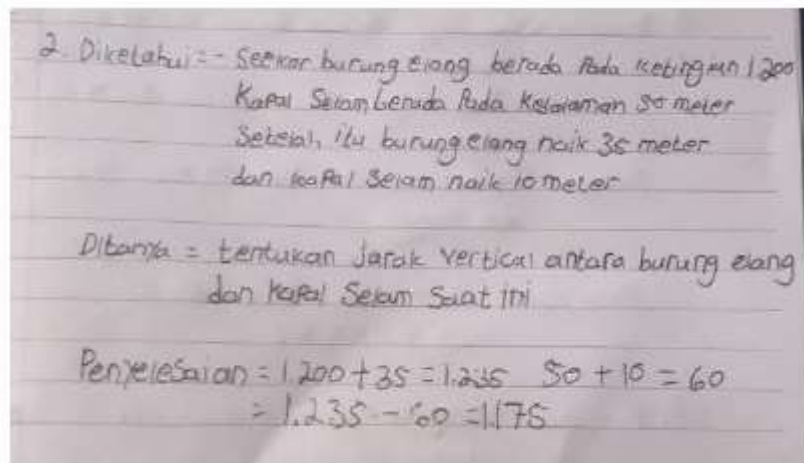 2. Diketahui = - Seekor burung elang berada Pada Ketinggian 1.200
Kapal Selam berada Pada Kedalaman 50 meter
Setelah itu burung elang naik 35 meter
dan kapal selam naik 10 meter
Ditanya = tentukan jarak vertical antara burung elang
dan kapal Selam Saat ini
Penyelesaian = 1.200 + 35 = 1.235 50 + 10 = 60
= 1.235 - 60 = 1.175